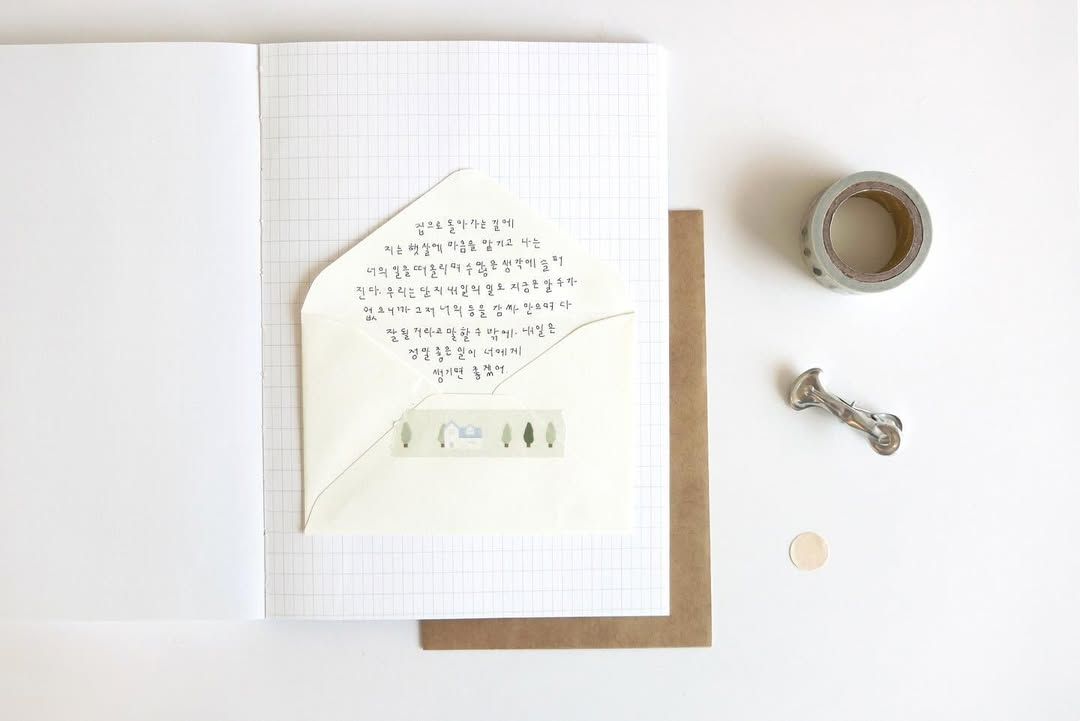 집으로 돌아가는 길에
지는 햇살에 마음을 맡기고 나는
너의 일을 떠올리며 수많은 생각에 슬퍼
진다. 우리는 단지 내일의 일도 지금은 알 수가
없으니까 그저 너의 등을 감싸 안으며 다
잘될 거라고 말할 수 밖에. 내일은
정말 좋은 일이 너에게
생기면 좋겠어.